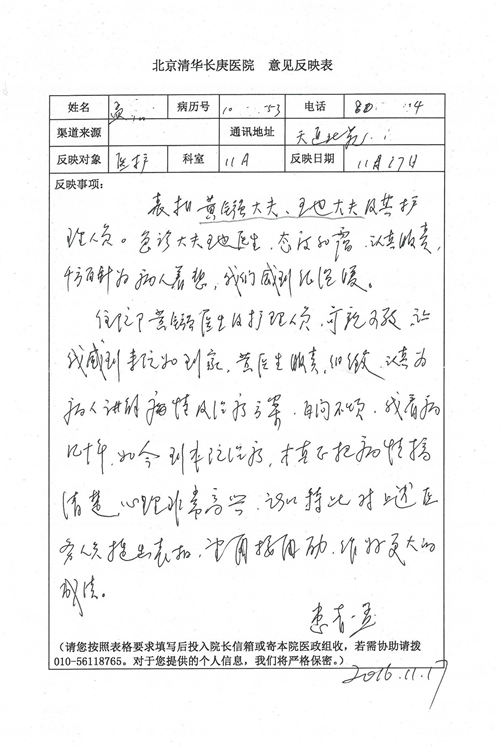 北京清华长庚医院 意见反映表
姓名 孟 病历号 10 53 电话 80 4
渠道来源 通讯地址 天通北苑
反映对象 医护 科室 11A 反映日期 11月17日
反映事项:
表扬黄 强大夫、王也大夫及其护
理人员。急诊大夫王也医生,态度和蔼,认真负责,
千方百计为病人着想,我们感到很温暖。
住院下黄 强医生及护理人员,可亲可敬,让
我感到来院如到家,黄医生负责,细致,认真为
病人讲解病情及治疗方案,百问不烦,我看病
几十年,如今到本院治疗,才真正把病情搞
清楚,心理非常高兴,所以特此对上述医
务人员提出表扬,望再接再励,作好更大的
成绩。
患者:孟
(请您按照表格要求填写后投入院长信箱或寄本院医政组收,若需协助请拨
010-56118765。对于您提供的个人信息,我们将严格保密。)
2016.11.17